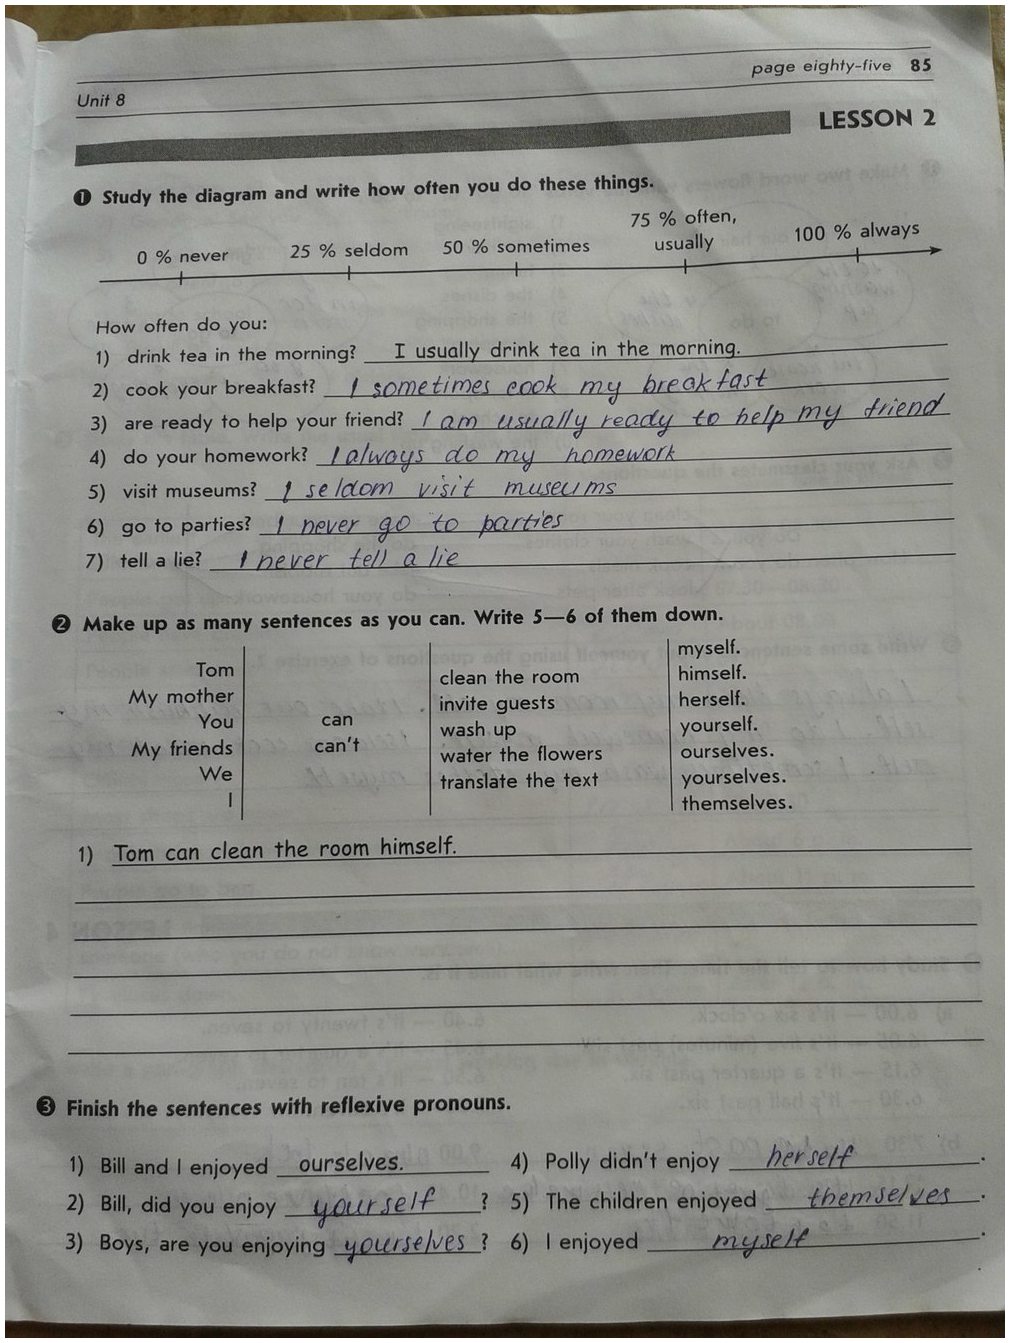 page eighty-five 85
Unit 8
LESSON 2
❶ Study the diagram and write how often you do these things.
75 % often,
0 % never 25 % seldom 50 % sometimes usually 100 % always
How often do you:
1) drink tea in the morning? I usually drink tea in the morning.
2) cook your breakfast? I sometimes cook my breakfast
3) are ready to help your friend? I am usually ready to help my friend
4) do your homework? I always do my homework
5) visit museums? I seldom visit museums
6) go to parties? I never go to parties
7) tell a lie? I never tell a lie
❷ Make up as many sentences as you can. Write 5—6 of them down.
Tom
My mother
You
My friends
We
I
can
can't
clean the room
invite guests
wash up
water the flowers
translate the text
myself.
himself.
herself.
yourself.
ourselves.
yourselves.
themselves.
1) Tom can clean the room himself.
❸ Finish the sentences with reflexive pronouns.
1) Bill and I enjoyed ourselves.
2) Bill, did you enjoy yourself ?
3) Boys, are you enjoying yourselves ?
4) Polly didn't enjoy herself .
5) The children enjoyed themselves .
6) I enjoyed myself .